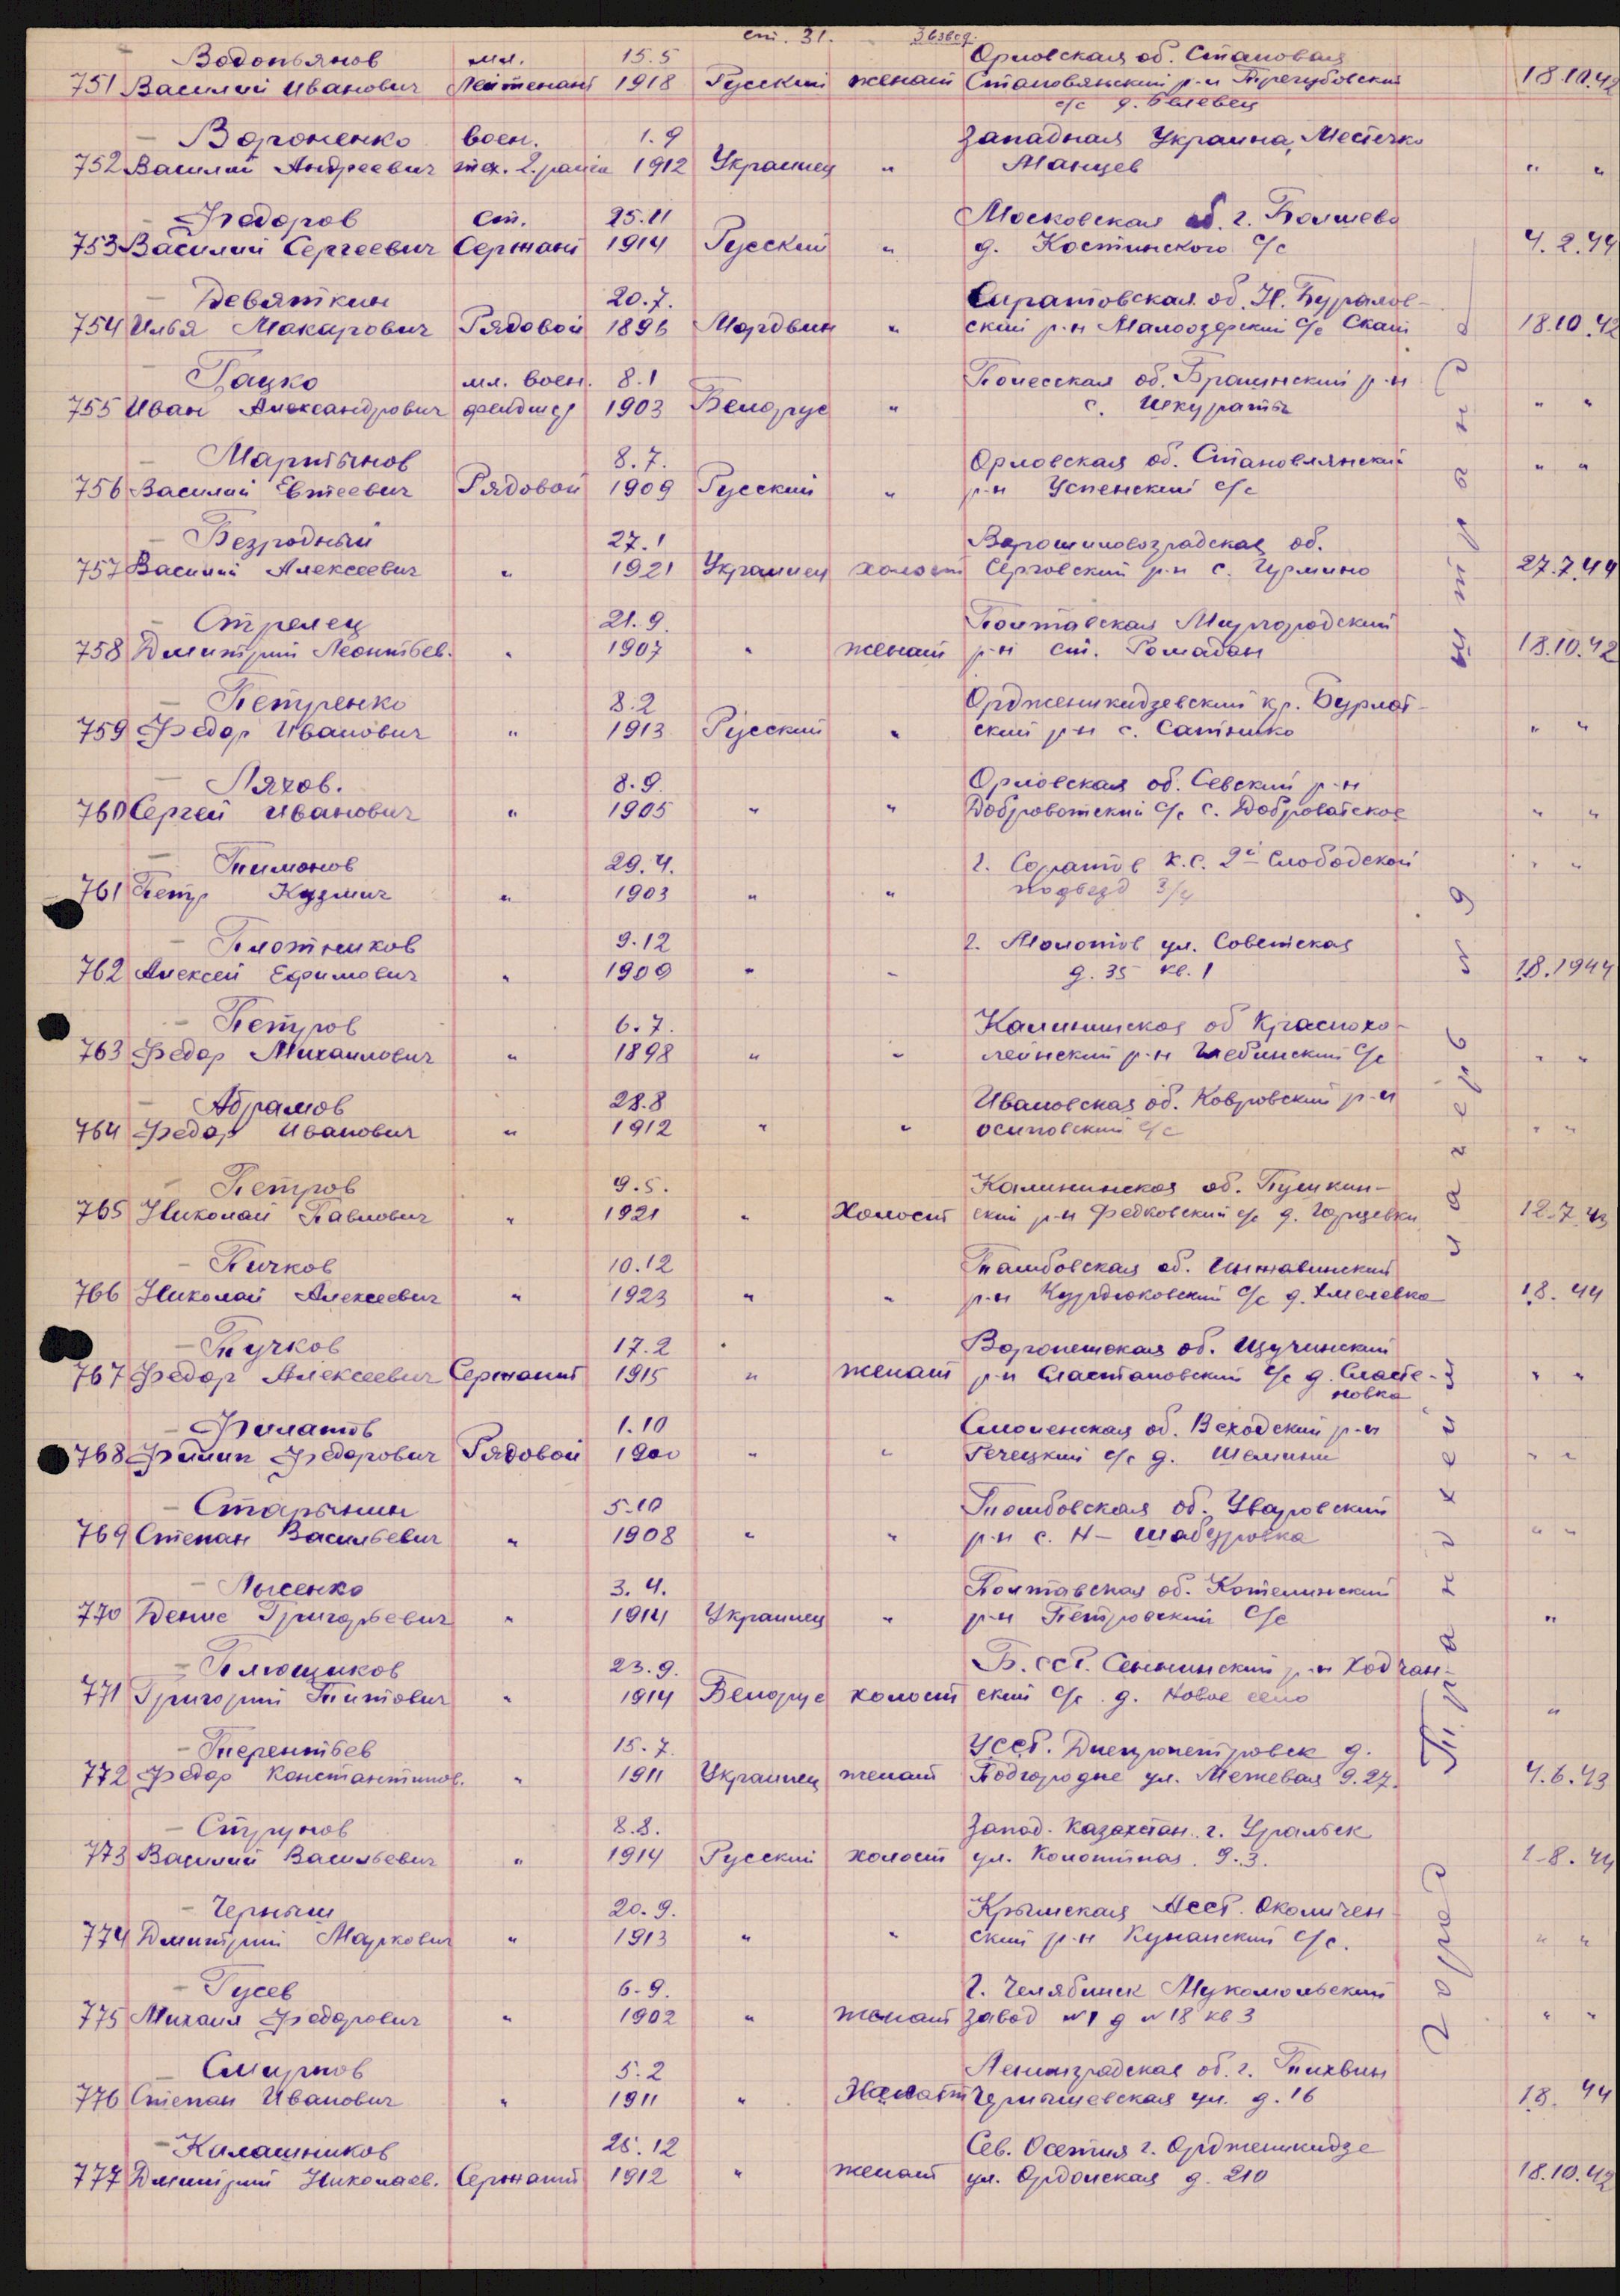 ст. 31. 3 взвод.
Водопьянов мл. 15.5 Орловская об. Становая
751 Василий Иванович Лейтенант 1918 Русский женат Становянский р-н 18.10.42
с/с д.
Вороненко воен. 1.9 Западная Украина, Местечко
752 Василий Андреевич тех. 2. ранга 1912 Украинец " Манцев " "
Федоров ст. 25.11 Московская об. г. Болшево
753 Василий Сергеевич Сержант 1914 Русский " д. Костинского с/с 4.2.44
Девяткин 20.7. Саратовская об. Н. Буралов-
754 Илья Макарович Рядовой 1896 Мордвин " ский р-н Малоозерский с/с 18.10.42
Гацко мл. воен. 8.1 Полесская об. Брагинский р-н
755 Иван Александрович фельдшер 1903 Белорус " с. Шкураты " "
Мартынов 8.7. Орловская об. Становлянский " "
756 Василий Евтеевич Рядовой 1909 Русский " р-н Успенский с/с
Безродный 27.1 Ворошиловоградская об.
757 Василий Алексеевич " 1921 Украинец холост р-н с. 27.7.44
Стрелец 21.9. Полтавская Миргородский
758 Дмитрий Леонтьев. " 1907 " женат р-н ст. Ромадан 18.10.42
Петренко 8.2 Орджоникидзевский кр. Бурлат-
759 Федор Иванович " 1913 Русский " ский р-н с. " "
Ляхов. 8.9. Орловская об. Севский р-н
760 Сергей Иванович " 1905 " " Доброводский с/с с. Доброводское " "
Тимонов 29.4. г. Соратов к.с. 2й Слободской " "
761 Петр Кузмич " 1903 " " подъезд 3/4
Плотников 9.12 г. Молотов ул. Советская
762 Алексей Ефимович " 1909 " " д. 35 кв. 1 1.8.1944
Петров 6.7. Калининская об Краснохо-
763 Федор Михаилович " 1898 " " лмнский р-н с/с " "
Абрамов 28.8 Ивановская об. Ковровский р-н
764 Федор Иванович " 1912 " " осиповский с/с " "
Петров 9.5. Калининская об. Пушкин-
765 Николай Павлович " 1921 " Холост ский р-н Федковский с/с д. 12.7.43
Пичков 10.12 Тамбовская об. Инжавинский
766 Николай Алексеевич " 1923 " " р-н Курдюковский с/с д. Хмелевка 1.8.44
Тучков 17.2 Воронежская об. Щучинский
767 Федор Алексеевич Сержант 1915 " женат р-н Сластановский с/с д. Сласте- " "
новка
Филатов 1.10 Смоленская об. Всходский р-н
768 Филип Федорович Рядовой 1900 " " с/с д. " "
Старынин 5.10 Тамбовская об. Уваровский
769 Степан Васильевич " 1908 " " р-н с. Н- Шабуровка " "
Лысенко 3.4. Полтавская об. Котелинский
770 Денис Григорьевич " 1914 Украинец " р-н Петровский с/с "
Плющиков 23.9. Б.ССР. Сеннинский р-н Ходчан-
771 Григорий Титович " 1914 Белорус холост ский с/с д. Новое село "
Терентьев 15.7. УССР. Днепропетровск д.
772 Федор Константинов. " 1911 Украинец женат Подгородне ул. Межевая д.27. 4.6.43
Струнов 8.8. Запад. Казахстан. г. Уральск
773 Василий Васильевич " 1914 Русский холост ул. д.3. 1-8.44
Черныш 20.9. Крымская АССР.
774 Дмитрий Маркович " 1913 " " ский р-н с/с. " "
Гусев 6.9. г. Челябинск Мукомольский
775 Михаил Федорович " 1902 " женат завод №1 д №18 кв 3 " "
Смирнов 5.2 Ленинградская об. г. Тихвин
776 Степан Иванович " 1911 " Чернышевская ул. д. 16 1.8. 44
Калашников 25.12 Сев. Осетия г. Орджоникидзе
777 Дмитрий Николаев. Сержант 1912 " женат ул. Ордонская д. 210 18.10.42
город Транкейзи лагерь № 9 штранд